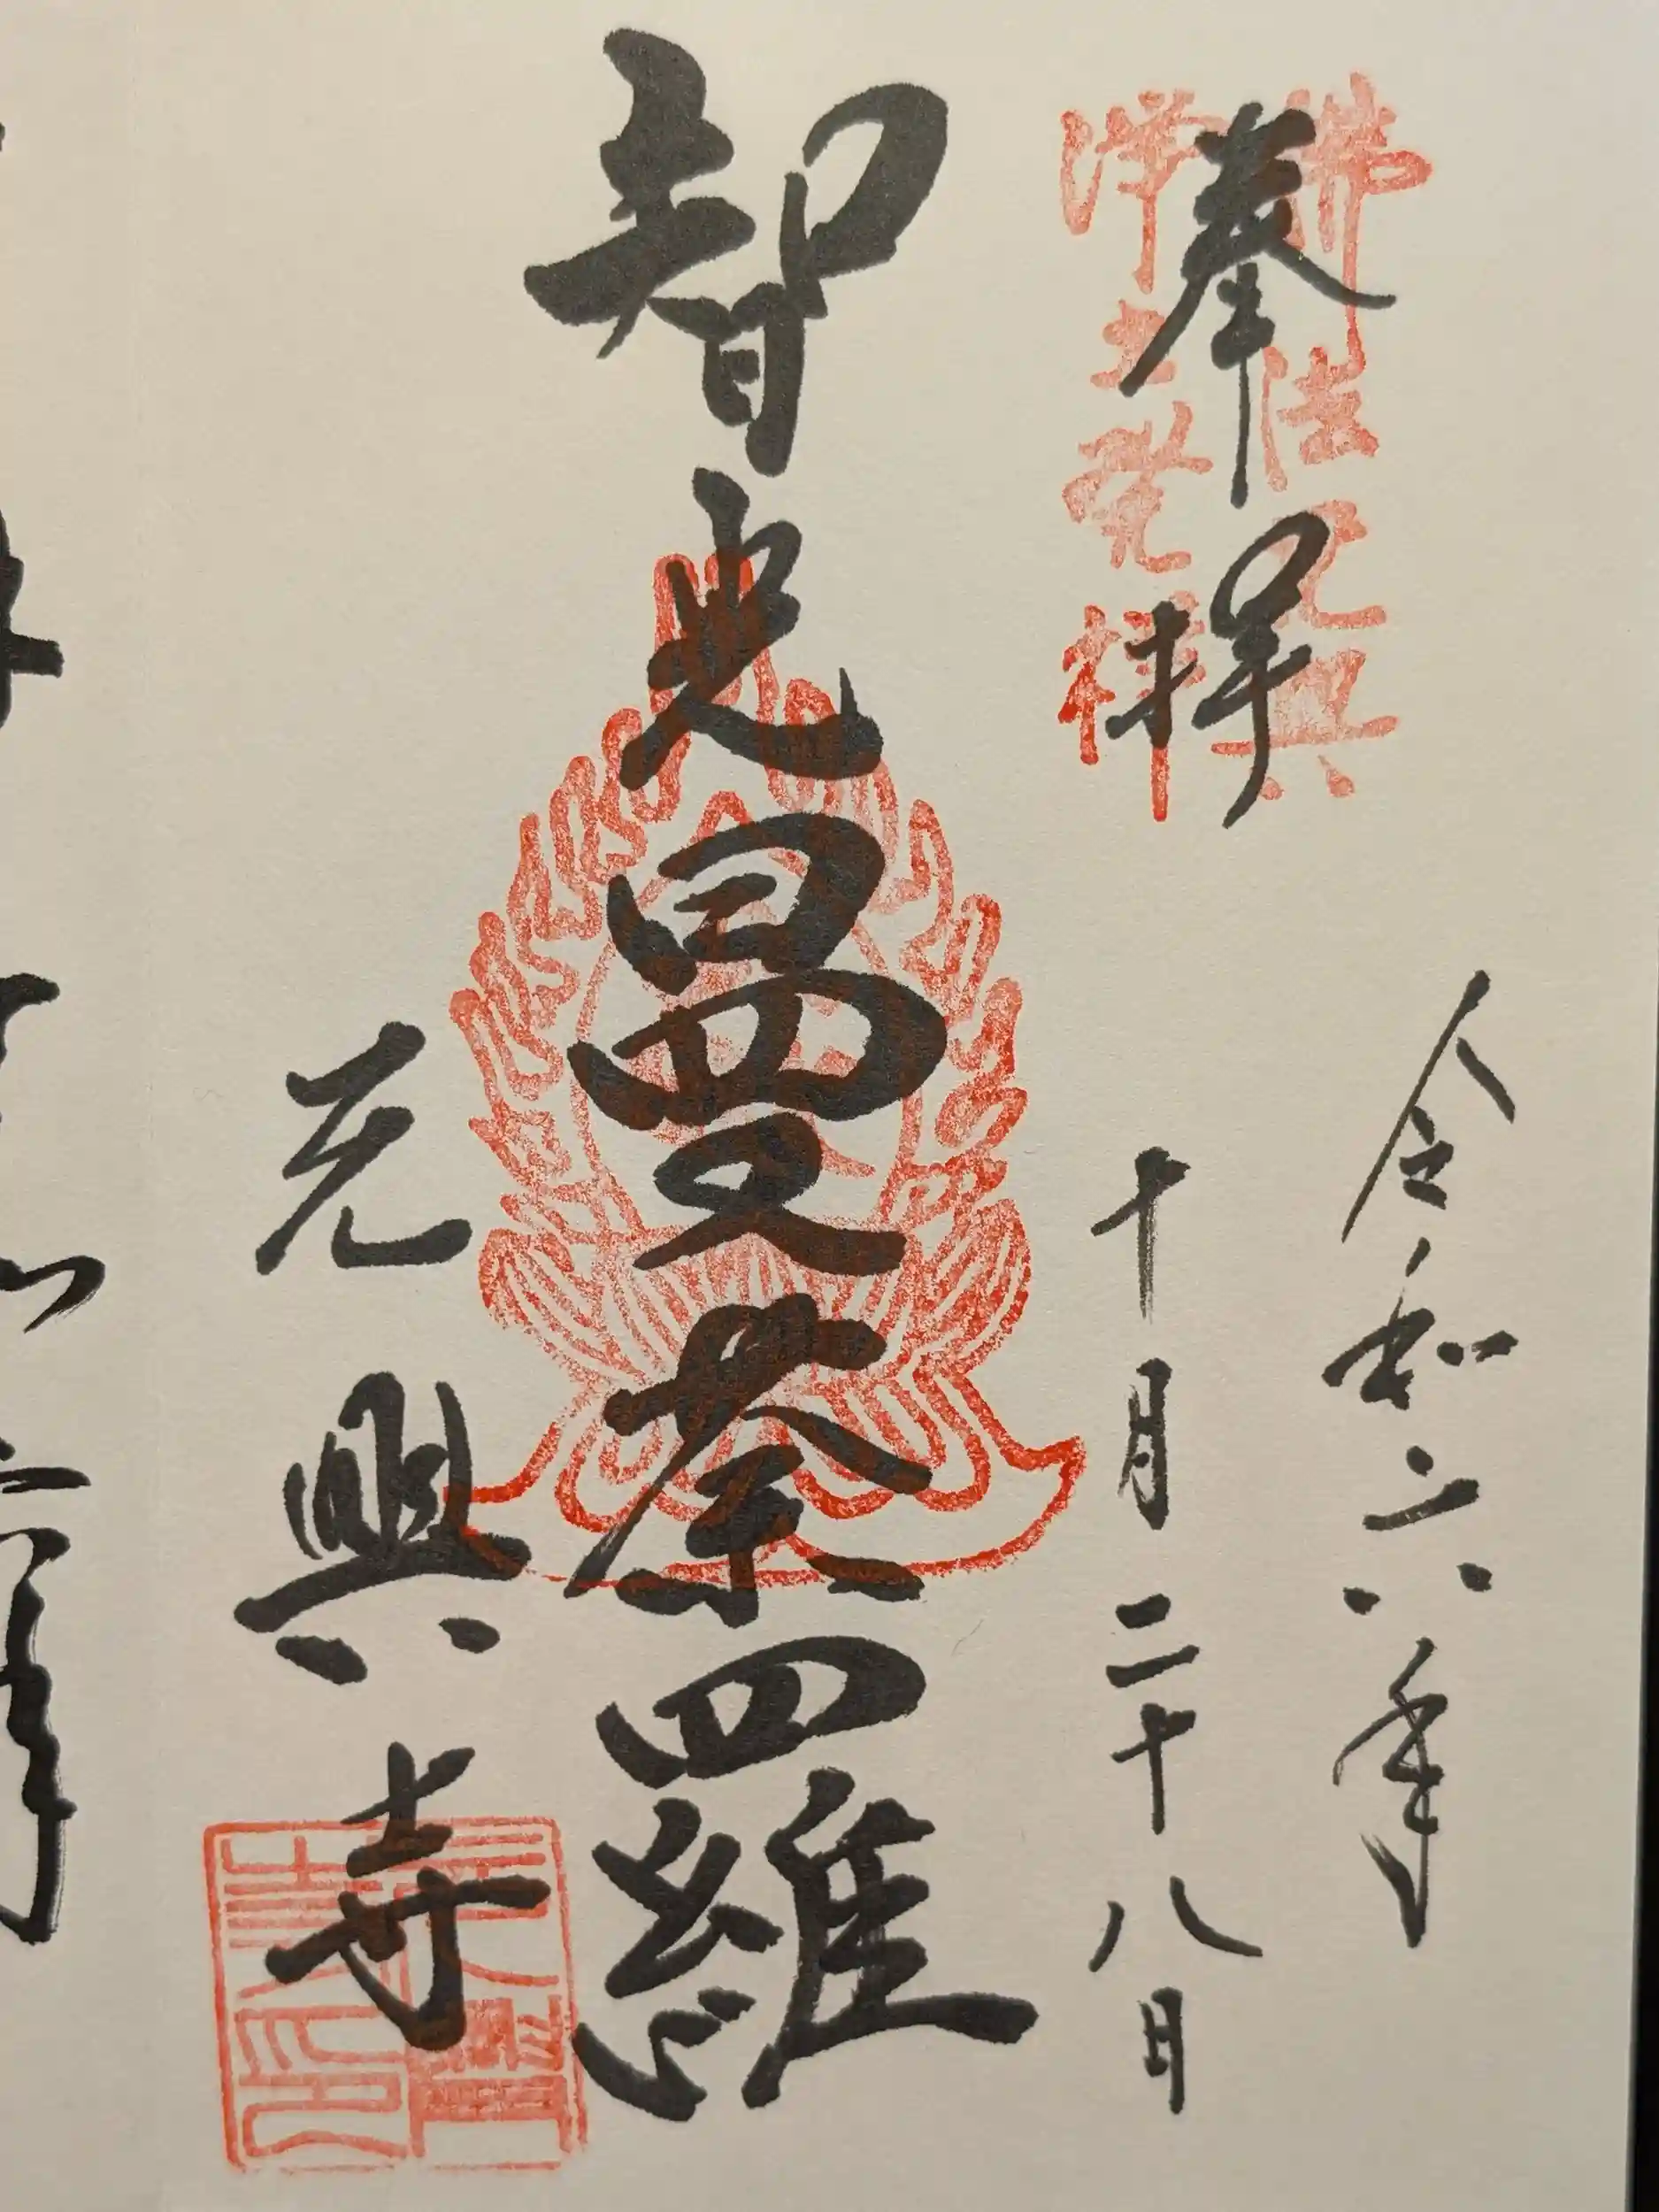 奉拝
佛法元興
浄土発祥
令和六年
十月二十八日
智光曼荼羅
元興寺
元興寺印